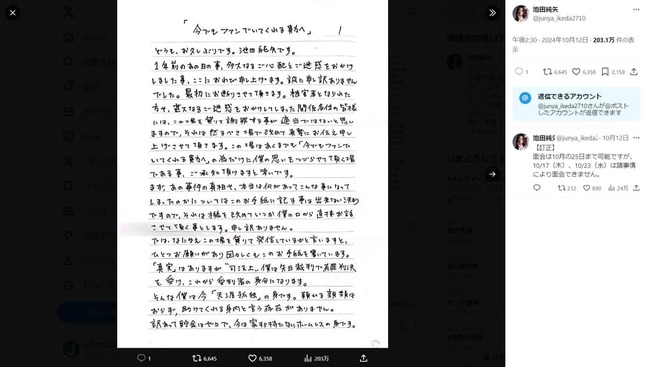 「今でもファンでいてくれる貴方へ」
1
どうも、お久しぶりです。池田純矢です。
1年前のあの日の事、多大なるご心配とご迷惑をおかけ
しました事、ここにお詫び申し上げます。誠に申し訳ありません
でした。最初にお断りさせて頂きます。被害者となられた
方や、甚大なるご迷惑をおかけしてしまった関係各位の皆様
には、この場を借りて謝罪する事が適当ではないと思い
ますので、それは然るべき場で改めて真摯にお伝え申し
上げさせて頂きます。この場はあくまでも「今でもファンで
いてくれる貴方へ」の為だけに僕の思いをつづらせて頂く場
である事、ご承知頂けますと幸いです。
まず、あの事件の真相や、本当は何があってこんな事になって
しまったのかについてはこのお手紙に記す事は出来ない
ですので、それは手紙を改めていつか僕の口から直接お話
させて頂く事とします。申し訳ありません。
では、なにゆえこの場を借りて発信しているかと言いますと、
ひとつお願いがあり図々しくもこのお手紙を書いています。
「真実」はありますが"司法上"僕は先日裁判で有罪判決
を受け、これから受刑者の身分になります。
そんな僕は今「天涯孤独」の身です。頼れる親類は
おらず、助けてくれる身内と言う存在がありません。
訳あって貯金はゼロで、今は家も持たないホームレスの身です。
1
6,645
6,358
203万
池田純矢
@junya_ikeda2710
午後2:30 · 2024年10月12日 · 203.1万 件の表
示
1
6,645
6,358
2,158
返信できるアカウント
@junya_ikeda2710さんが@ポスト
したアカウントが返信できます
池田純矢 @junya_ikeda2 · 10月12日
【訂正】
面会は10月の25日まで可能ですが、
10/17（木）、10/23（水）は諸事情
により面会できません。
212
690
24万